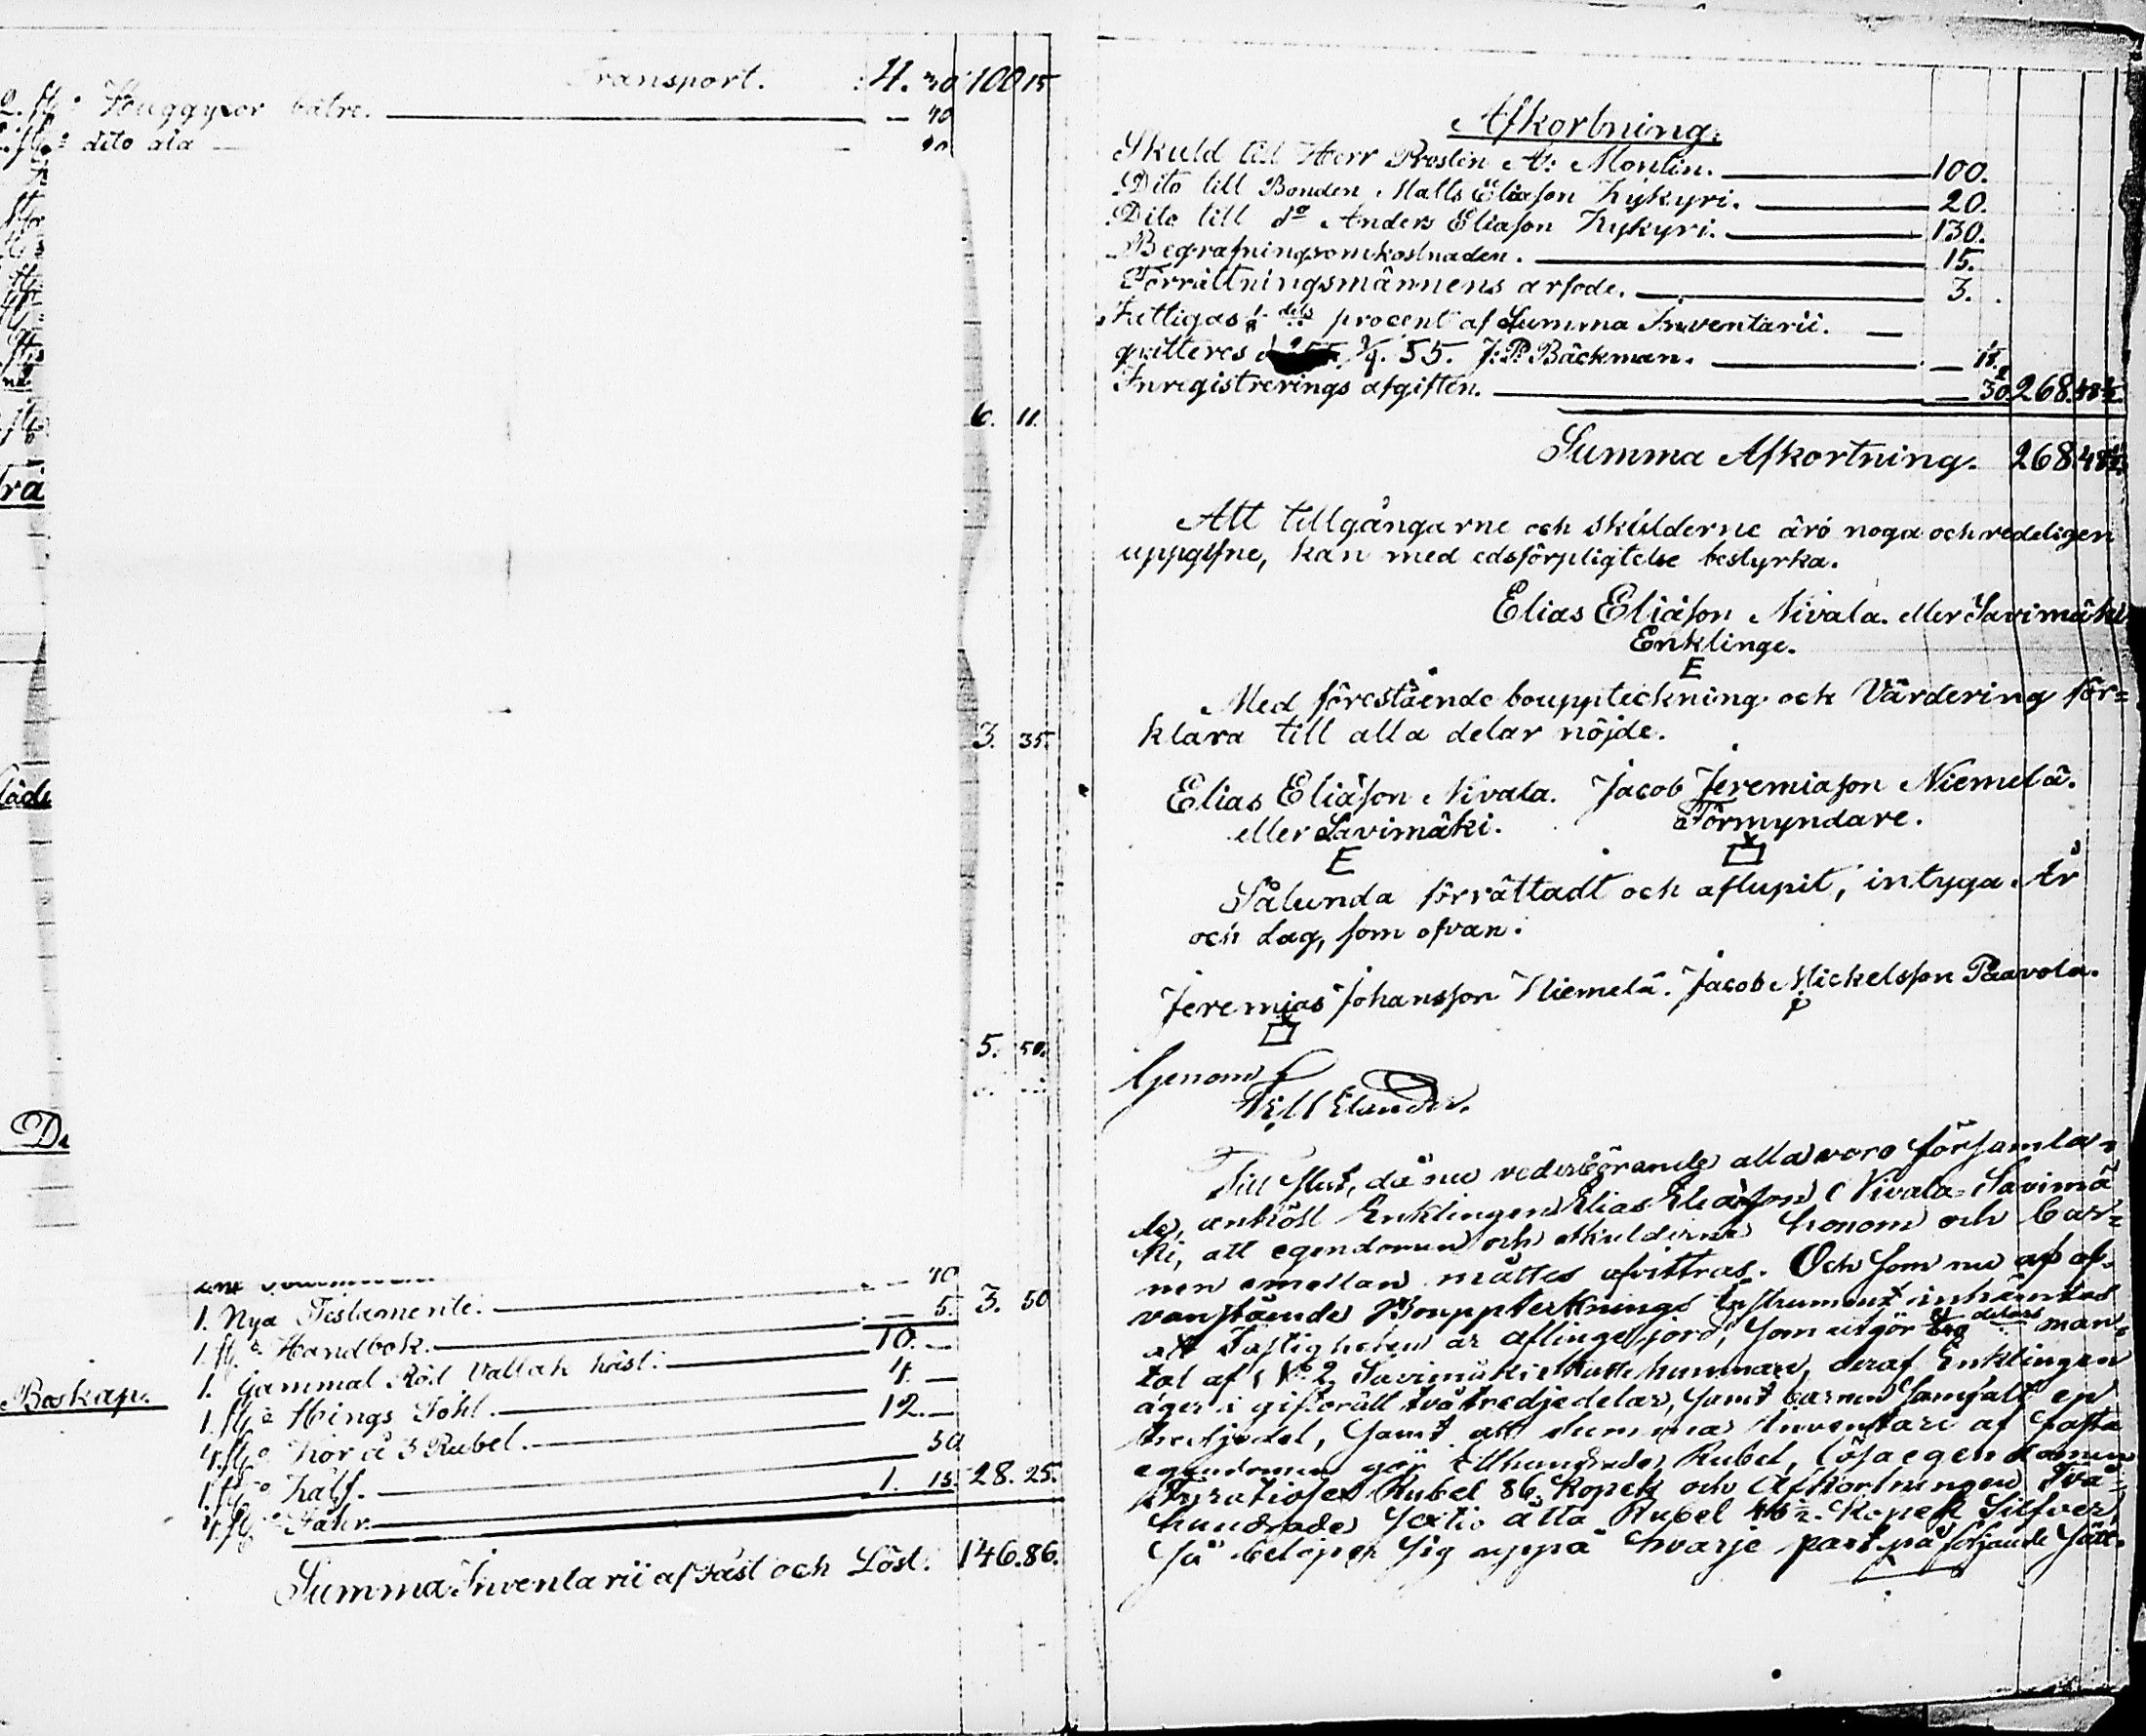 Transport. 4. 30 100 15
2. st:o Huggyxor bätre. — 40
st:o dito
6. 11.
3. 35.
5. 50.
40
1. Nya Testamente. — 5. 3. 50
1. st:o Handbok. 10. —
1. Gammal Röd Vallak häst. 4. —
Boskap. 1. st:o Hings Fohl. 12. —
4. st:o Kor à 3 Rubel. 50
1. st:o Kalf. 1. 15. 28. 25.
4. st:o Fåhr.
Summa Inventarii af Fast och Löst. 146. 86.
Afkortning.
Skuld till Herr Prosten A: Montin. 100.
Dito till Bonden Matts Eliasson Kykyri. 20.
Dito till do Anders Eliason Kykyri. 130.
Begrafningsomkostnaden. 15.
Förrättningsmännens arfode. 3.
Fattigas procent af Summa Inventarii.
qvitteras 55. J: P: Bäckman. — 18.
Inregistrerings afgiften. — 30 268. 48½.
Summa Afkortning. 268. 48½.
Att tillgångarne och skulderne äro noga och redeligen
uppgifne, kan med edsförpligtelse bestyrka.
Elias Eliason Nivala. eller Savimäki
Enklinge.
E
Med förestående bouppteckning och Värdering för=
klara till alla delar nöjde.
Elias Eliason Nivala. Jacob Jeremiason Niemelä.
eller Savimäki. Förmyndare.
E
Sålunda förrättadt och aflupit, intyga. År
och dag, som ofvan.
Jeremias Johansson Niemelä. Jacob Mickelsson Paavola.
Genom
Till slut, då nu vederbörande alla voro församla=
de, anhöll Enklingen Elias Eliason Nivala Savimä
ki, att egendomen och skulderna honom och bar=
nen emellan måttes afvittras. Och som nu af of=
vanstående Bouppteknings Instrument inhämtas
att Fastigheten är aflinge jord, som utgör delars man=
tal af No 2 Savimäki hemman, deraf Enklingen
äger i giftorätt två tredjedelar, samt barnen samfalt en
tredjedel, samt att summa Inventarii af fasta
egendomen gör Etthundrade Rubel, lösa egendomen
fyratiosex Rubel 86. Kopek och Afkortningen Två=
hundrade sextio åtta Rubel 48½ Kopek Silfver,
så belöper sig uppå hvarje part på följande sätt.